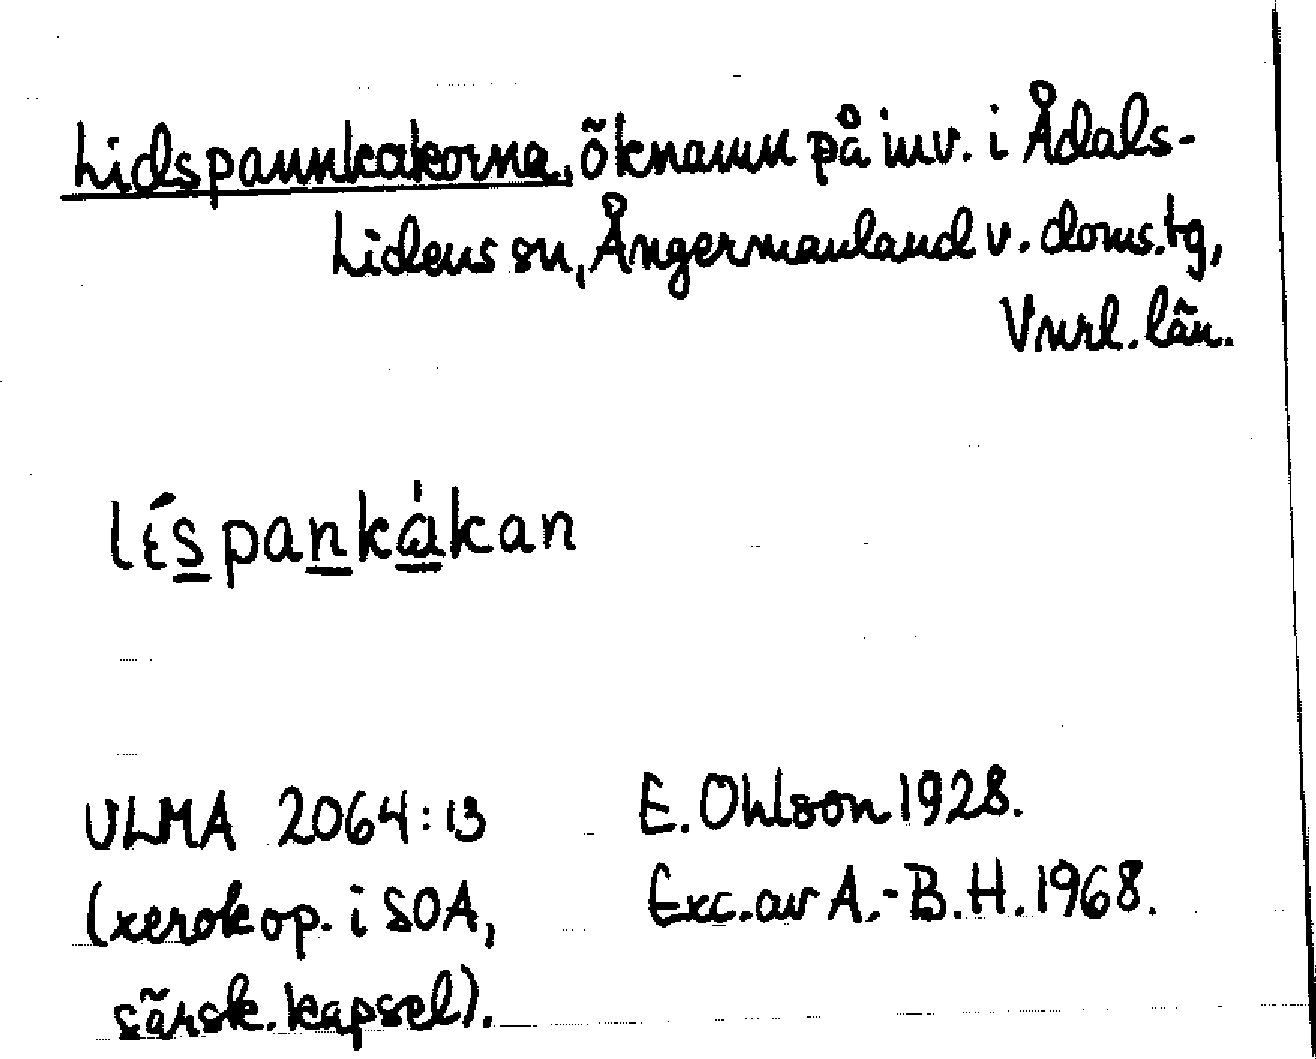 Lidspannkakorna, öknamn på inv. i Ådals-
Lidens sn, Ångermanland v. doms.tg,
Vnrl. län.
lɛ́s̲pan̲kà̲kan
ULMA 2064:13
(xerokop. i SOA,
särsk. kapsel).
E. Ohlson 1928.
Exc. av A.-B.H. 1968.